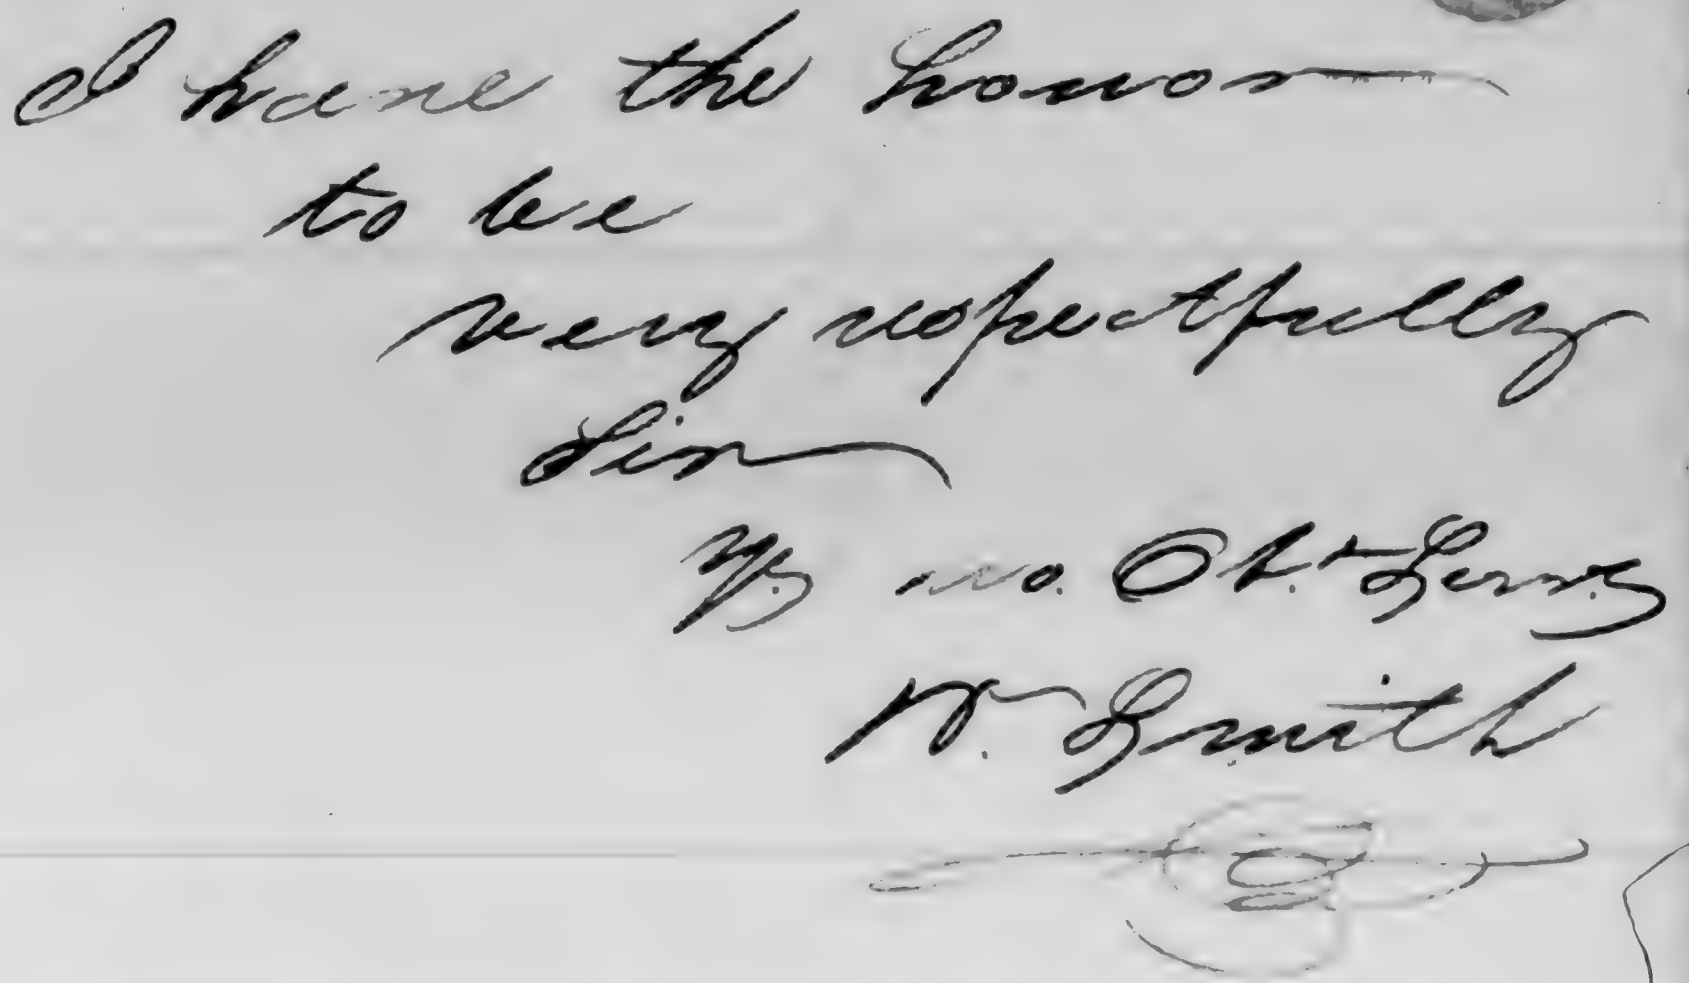 I have the honor
to be
very respectfully
Sir
Yr. mo. Obt. Servt.
Wm. Smith